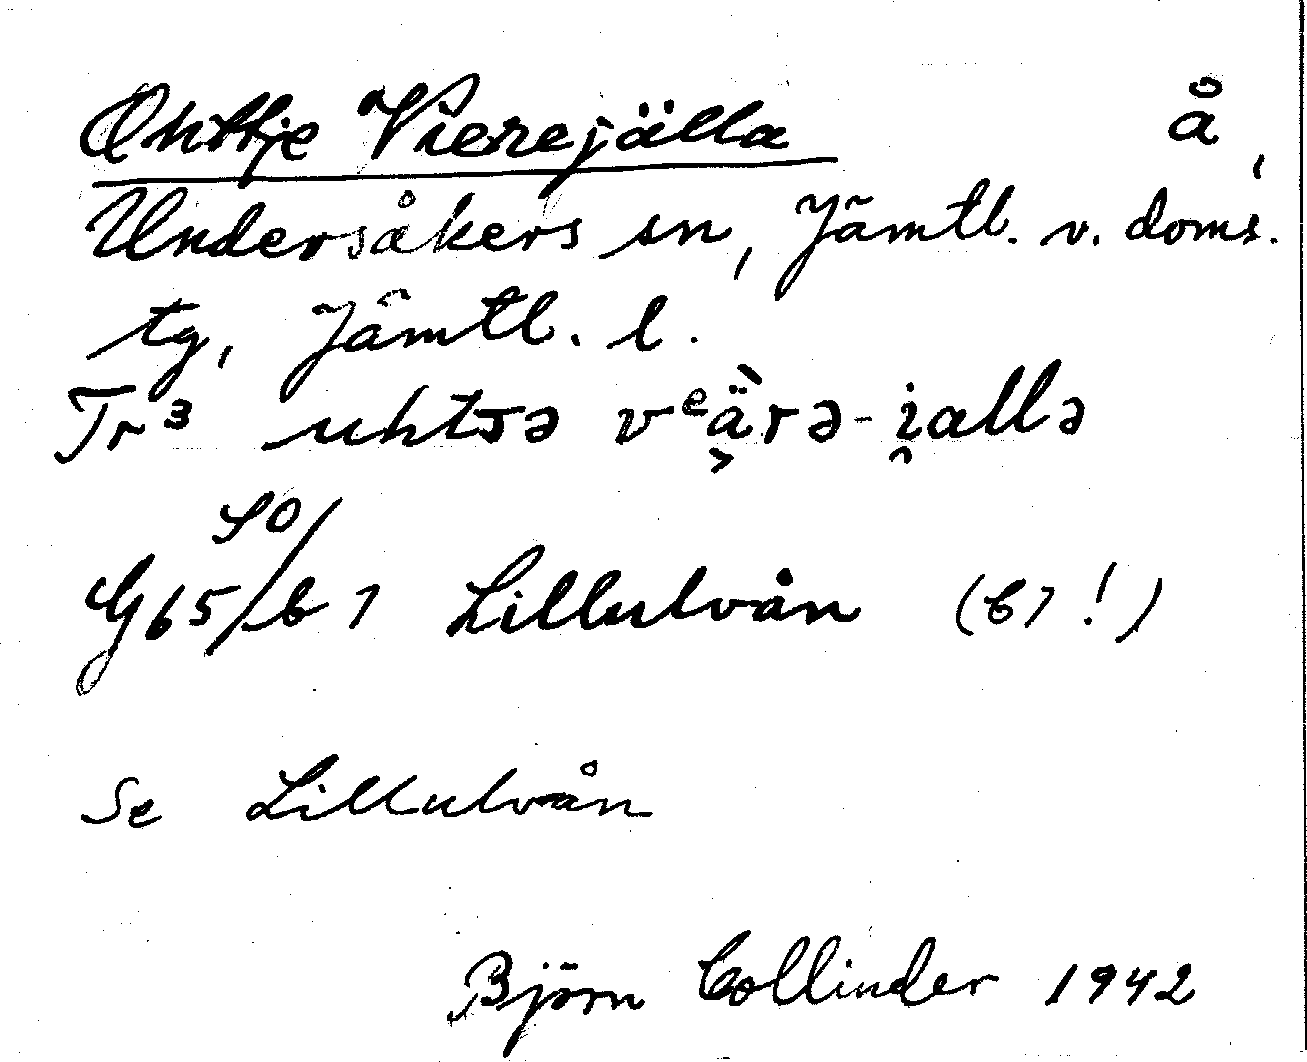 Ohttje Vierejälla å,
Undersåkers sn, Jämtl. v. doms.
tg, Jämtl. l.
Tr³ uhtsə
G65 SO/b 7 Lillulvån (b7!)
Se Lillulvån
Björn Collinder 1942